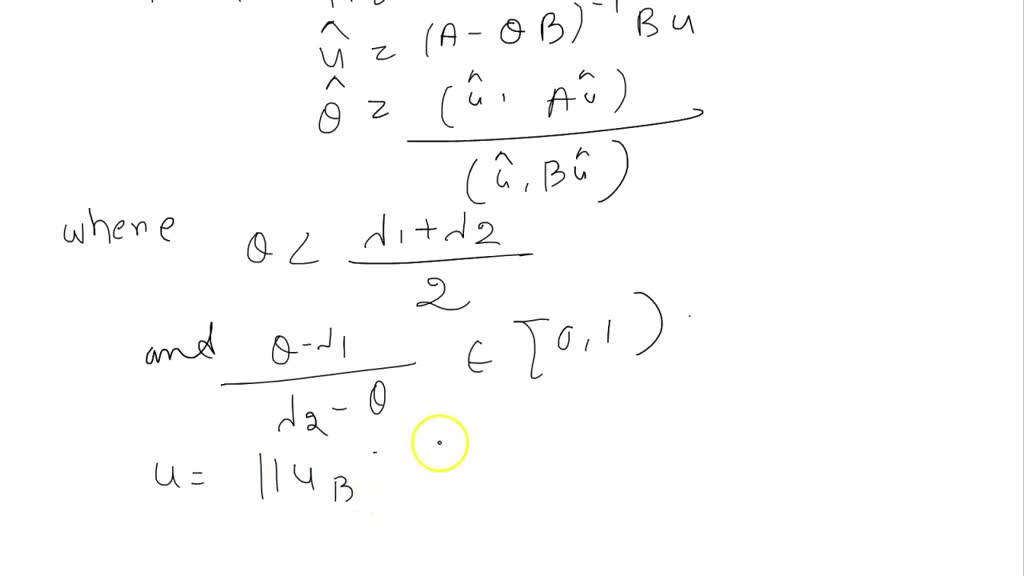 û = (A - θB)⁻¹ Bu
θ̂ = (û, Aû) / (û, Bû)
where θ < (λ1 + λ2) / 2
and (θ - λ1) / (λ2 - θ) ∈ [0, 1)
u = ||u B